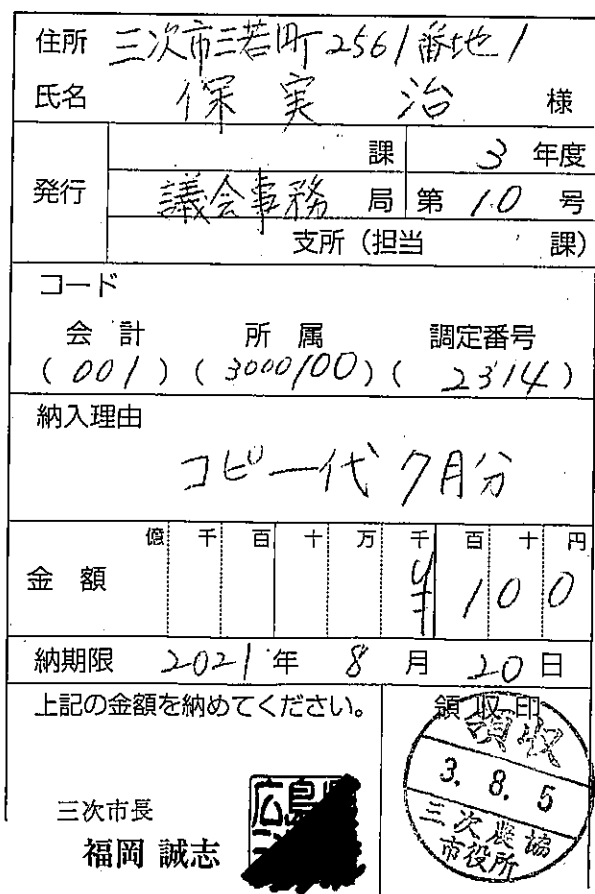 住所 三次市三若町2561番地1
氏名 保実 治 様
課 3 年度
発行 議会事務 局 第 10 号
支所(担当 課)
コード
会計 所属 調定番号
(001)(3000100)(2314)
納入理由
コピー代 7月分
億 千 百 十 万 千 百 十 円
金額 ¥ 1 0 0
納期限 2021 年 8 月 20 日
上記の金額を納めてください。
領収印
領収
3. 8. 5
三次農協
市役所
三次市長
福岡 誠志
広島